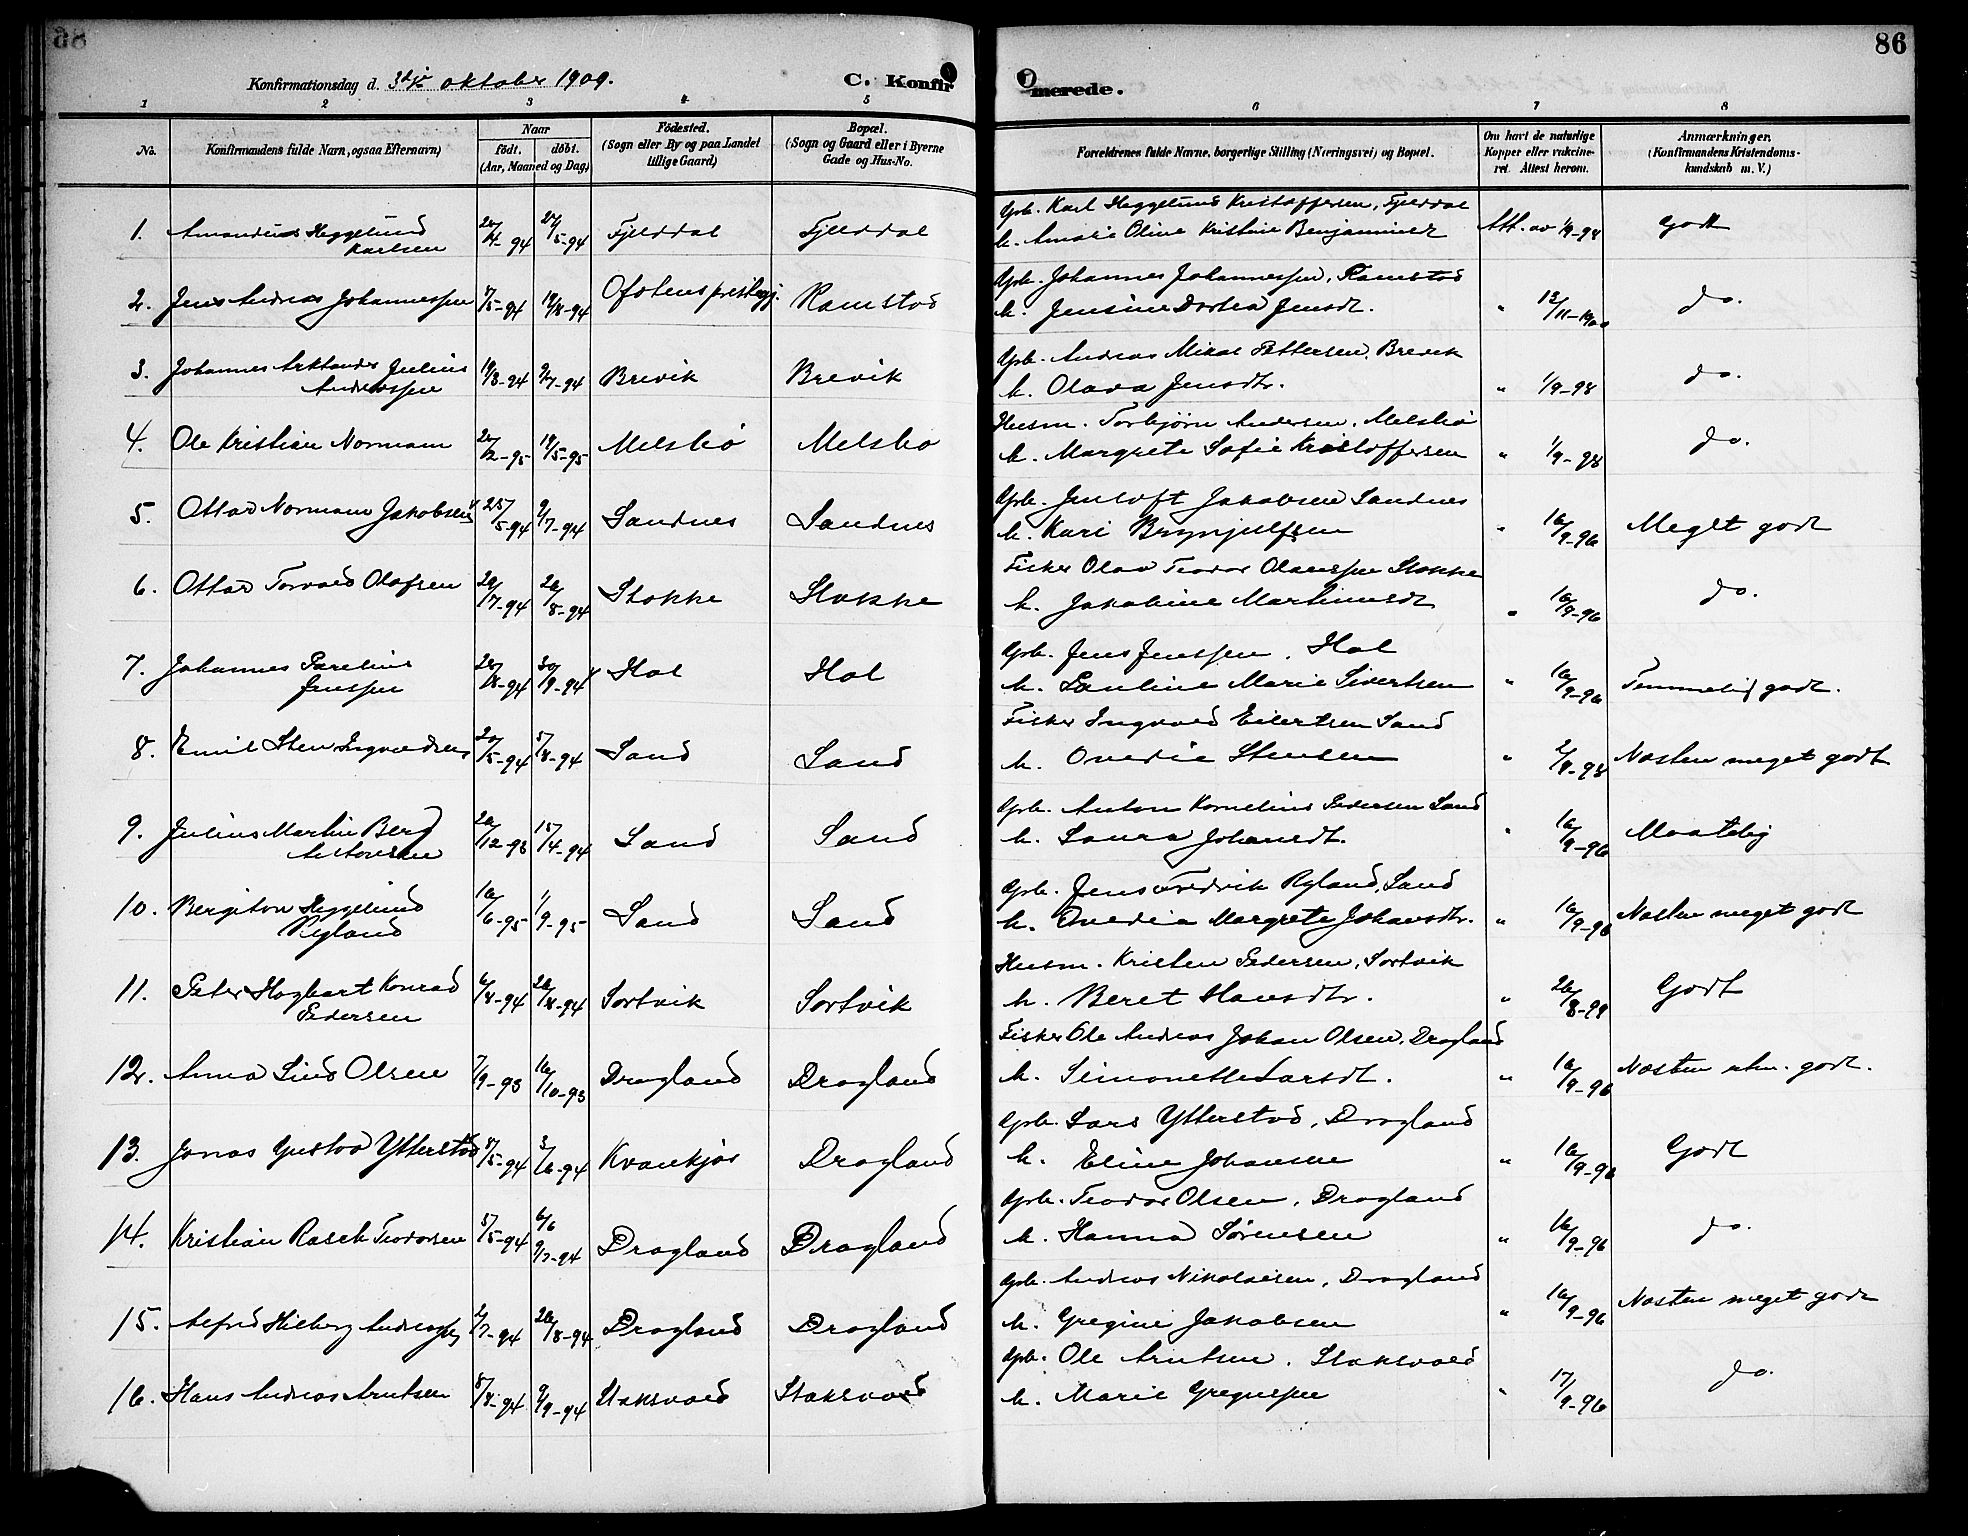 86
Konfirmationsdag d. 3dje oktober 1909. C. Konfirmerede.
1 2 3 4 5 6 7 8
No. Konfirmandens fulde Navn, ogsaa Efternavn) Naar födt. döbt. (Aar, Maaned og Dag) Födested. (Sogn eller By og paa Landet tillige Gaard) Bopæl. (Sogn og Gaard eller i Byerne Gade og Hus-No. Forældrenes fulde Navne, borgerlige Stilling (Næringsvei) og Bopæl. Om havt de naturlige Kopper eller vakcineret. Attest herom. Anmærkninger. (Konfirmandens Kristendomskundskab m. V.)
1. Amandus Heggelund Karlsen 94 5-94 Fjelddal Fjelddal Gpb. Karl Heggelund Kristoffersen, Fjelddal
h. Amalie Oline Kristine Benjaminsdt Att. av 1/9-98 godt
2. Jens Andreas Johannessen 8/5-94 19/8-94 Ofotens prestegj. Ramstad Gpb. Johannes Johannessen, Ramstad
h. Jensine Dortea Jensdt. " 12/11-1900 do.
3. Johannes Arklander Julius Andreassen 19/3-94 9/7-94 Brevik Brevik Gpb. Andreas Mikal Pettersen, Brevik
h. Olava Jensdtr. " 1/9-98 do.
4. Ole Kristian Normann 2-95 19/5-95 Melsbö Melsbo Husm. Torbjørn Andersen, Melsbö
h. Margrete Sofie Kristoffersen " 1/9-98 do.
5. Ottar Normann Jakobsen 25/5-94 9/7-94 Sandnes Sandnes Gpb. Jentoft Jakobsen Sandnes
h. Kari Brynjulfsen " 16/9-96 Meget godt
6. Ottar Torvald Olafsen 7-94 26/8-94 Stokke Stokke Fisker Olav Teodor Olaussen Stokke
h. Jakobine Martinusdt " 16/9-96 do.
7. Johannes Parelius Jenssen 8-94 30/9-94 Hol Hol Gpb. Jens Jenssen, Hol
h. Pauline Marie Sivertsen " 16/9-96 Temmelig godt.
8. Emil Sten Ingvaldsen 20/5-94 5/8-94 Sand Sand Fisker Ingvald Eilertsen Sand
h. Ovedie Stensen " 2/8-98 Næsten meget godt
9. Julius Martin Berg Antonsen 12-93 15/4-94 Sand Sand Gpb. Anton Kornelius Pedersen Sand
h. Laura Johansdt. " 16/9-96 Maatelig
10. Bergiton Heggelund Ryland 16/6-95 1/9-95 Sand Sand Gpb. Jens Fredrik Ryland, Sand
h. Ovedia Margrete Johansdtr. " 16/9-96 Næsten meget godt
11. Peter Hagbart Konrad Pedersen 6/8-94 26/8-94 Sortvik Sortvik Husm. Kristen Pedersen, Sortvik
h. Beret Hansdtr. " 26/8-99 Godt
12. Anna Lind Olsen 7/9-93 10-93 Dragland Dragland Fisker Ole Andreas Johan Olsen, Dragland
h. Simonette Larsdt. " 16/9-96 Næsten godt.
13. Jonas Gustav Ytterstad 8/5-94 3/6-94 Kvankjös Dragland Gpb. Lars Ytterstad, Dragland
h. Eline Johansen " 16/9-96 Godt
14. Kristian Rasch Teodorsen 5/5-94 6/6 9/7-94 Dragland Dragland Gpb. Teodor Olsen, Dragland
h. Hanna Sørensen " 16/9-96 do.
15. Alfred Hilberg Andreassen 2/7-94 26/8-94 Dragland Dragland Gpb. Andreas Nikolaisen, Dragland
h. Gregine Jakobsen " 16/9-96 Næsten meget godt
16. Hans Andreas Arntsen 8/8-94 9/9-94 Staksvold Staksvold Gpb. Ole Arntsen, Staksvold
h. Marie Gregussen " 17/9-96 do.